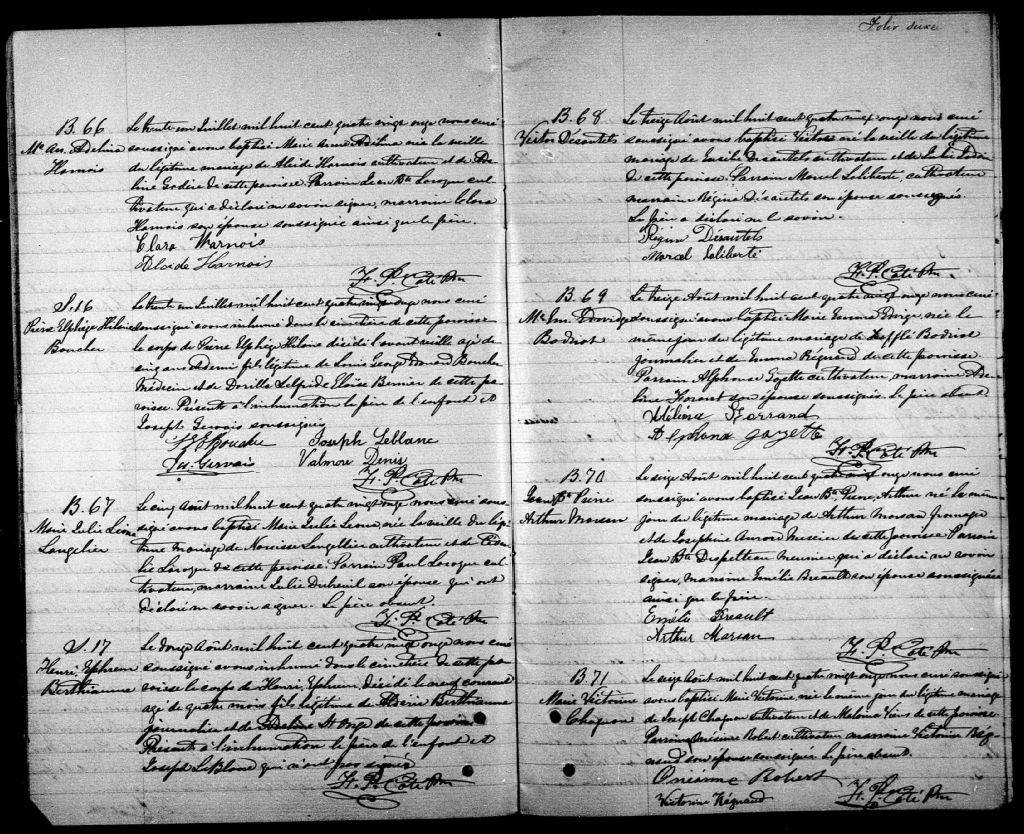 B. 66
Me An. Adelina
Harnois
Le trente un Juillet mil huit cent quatre vingt onze nous curé
soussigné avons baptisé Marie Anna Adelina née la veille
du légitime mariage de Alcide Harnois cultivateur et de Ade
line de cette paroisse. Parrain Jean Bte Laroque cul
tivateur qui a déclaré ne savoir signer, marraine Clara
Harnois son épouse soussignée ainsi que le père.
Clara Harnois
Alcide Harnois
F. P. Coté Ptre
S. 16
Pierre Elphége Hilaire
Boucher
Le trente un Juillet mil huit cent quatre vingt onze nous curé
soussigné avons inhumé dans le cimetière de cette paroisse
le corps de Pierre Elphége Hilaire décédé l'avant veille agé de
cinq ans et demi fils légitime de Louis George Edouard Boucher
Médecin et de Dorilla Elise Bernier de cette pa
roisse. Présents à l'inhumation le père de l'enfant et
Joseph Gervais soussignés
Joseph Leblanc
Jos. Gervais Valmore Denis
F. P. Coté Ptre
B. 67
Marie Julie Léona
Langelier
Le cinq Août mil huit cent quatre vingt onze nous curé sous
signé avons baptisé Marie Julie Leona, née la veille du légi
time mariage de Narcisse Langellier cultivateur et de
Laroque de cette paroisse. Parrain Paul Laroque cul
tivateur, marraine Julie Dubreuil son épouse qui ont
déclaré ne savoir signer. Le père absent.
F. P. Coté Ptre
S. 17
Henri, Ephrem
Berthiaume
Le douze Août mil huit cent quatre vingt onze nous curé
soussigné avons inhumé dans le cimetière de cette pa
roisse le corps de Henri, Ephrem, décédé le neuf courant
agé de quatre mois fils légitime de Berthiaume
journalier et de St Onge de cette paroisse
Présents à l'inhumation le père de l'enfant et
Joseph LeBlanc qui n'ont pas signé
F. P. Coté Ptre
Folio deuxe
B. 68
Victor Désautels
Le treize Août mil huit cent quatre vingt onze nous curé
soussigné avons baptisé Victor né la veille du légitime
mariage de Désautels cultivateur et de Julie
de cette paroisse. Parrain Marcel Laliberté, cultivateur
marraine Régina Désautels son épouse soussignés.
Le père a déclaré ne le savoir.
Régina Désautels
Marcel Laliberté
F. P. Coté Ptre
B. 69
Me Em.
Le treize Août mil huit cent quatre vingt onze nous curé
soussigné avons baptisé Marie Emma née le
même jour du légitime mariage de
journalier et de Emma Régnaud de cette paroisse.
Parrain Alphonse Goyette cultivateur, marraine
son épouse soussignés. Le père absent.
Mélina
Alphonse Goyette
F. P. Coté Ptre
B. 70
Jean Bte Pierre
Arthur Morsan
Le seize Août mil huit cent quatre vingt onze nous curé
soussigné avons baptisé Jean Bte Pierre, Arthur né le même
jour du légitime mariage de Arthur Morsan fromager
et de Josephine Aurore Mercier de cette paroisse. Parrain
Jean Bte Meunier qui a déclaré ne savoir
signer, marraine Emélie Breault son épouse soussignée
ainsi que le père.
Emélie Breault
Arthur Marsan
F. P. Coté Ptre
B. 71
Marie Victorine
Chapron
Le seize Août mil huit cent quatre vingt onze nous curé soussigné
avons baptisé Marie Victorine née le même jour du légitime mariage
de Joseph Chapron cultivateur et de Malvina Viens de cette paroisse.
Parrain Onésime Robert cultivateur marraine Victorine Rég
naud son épouse soussignés. Le père absent
Onésime Robert
Victorine Régnaud
F. P. Coté Ptre